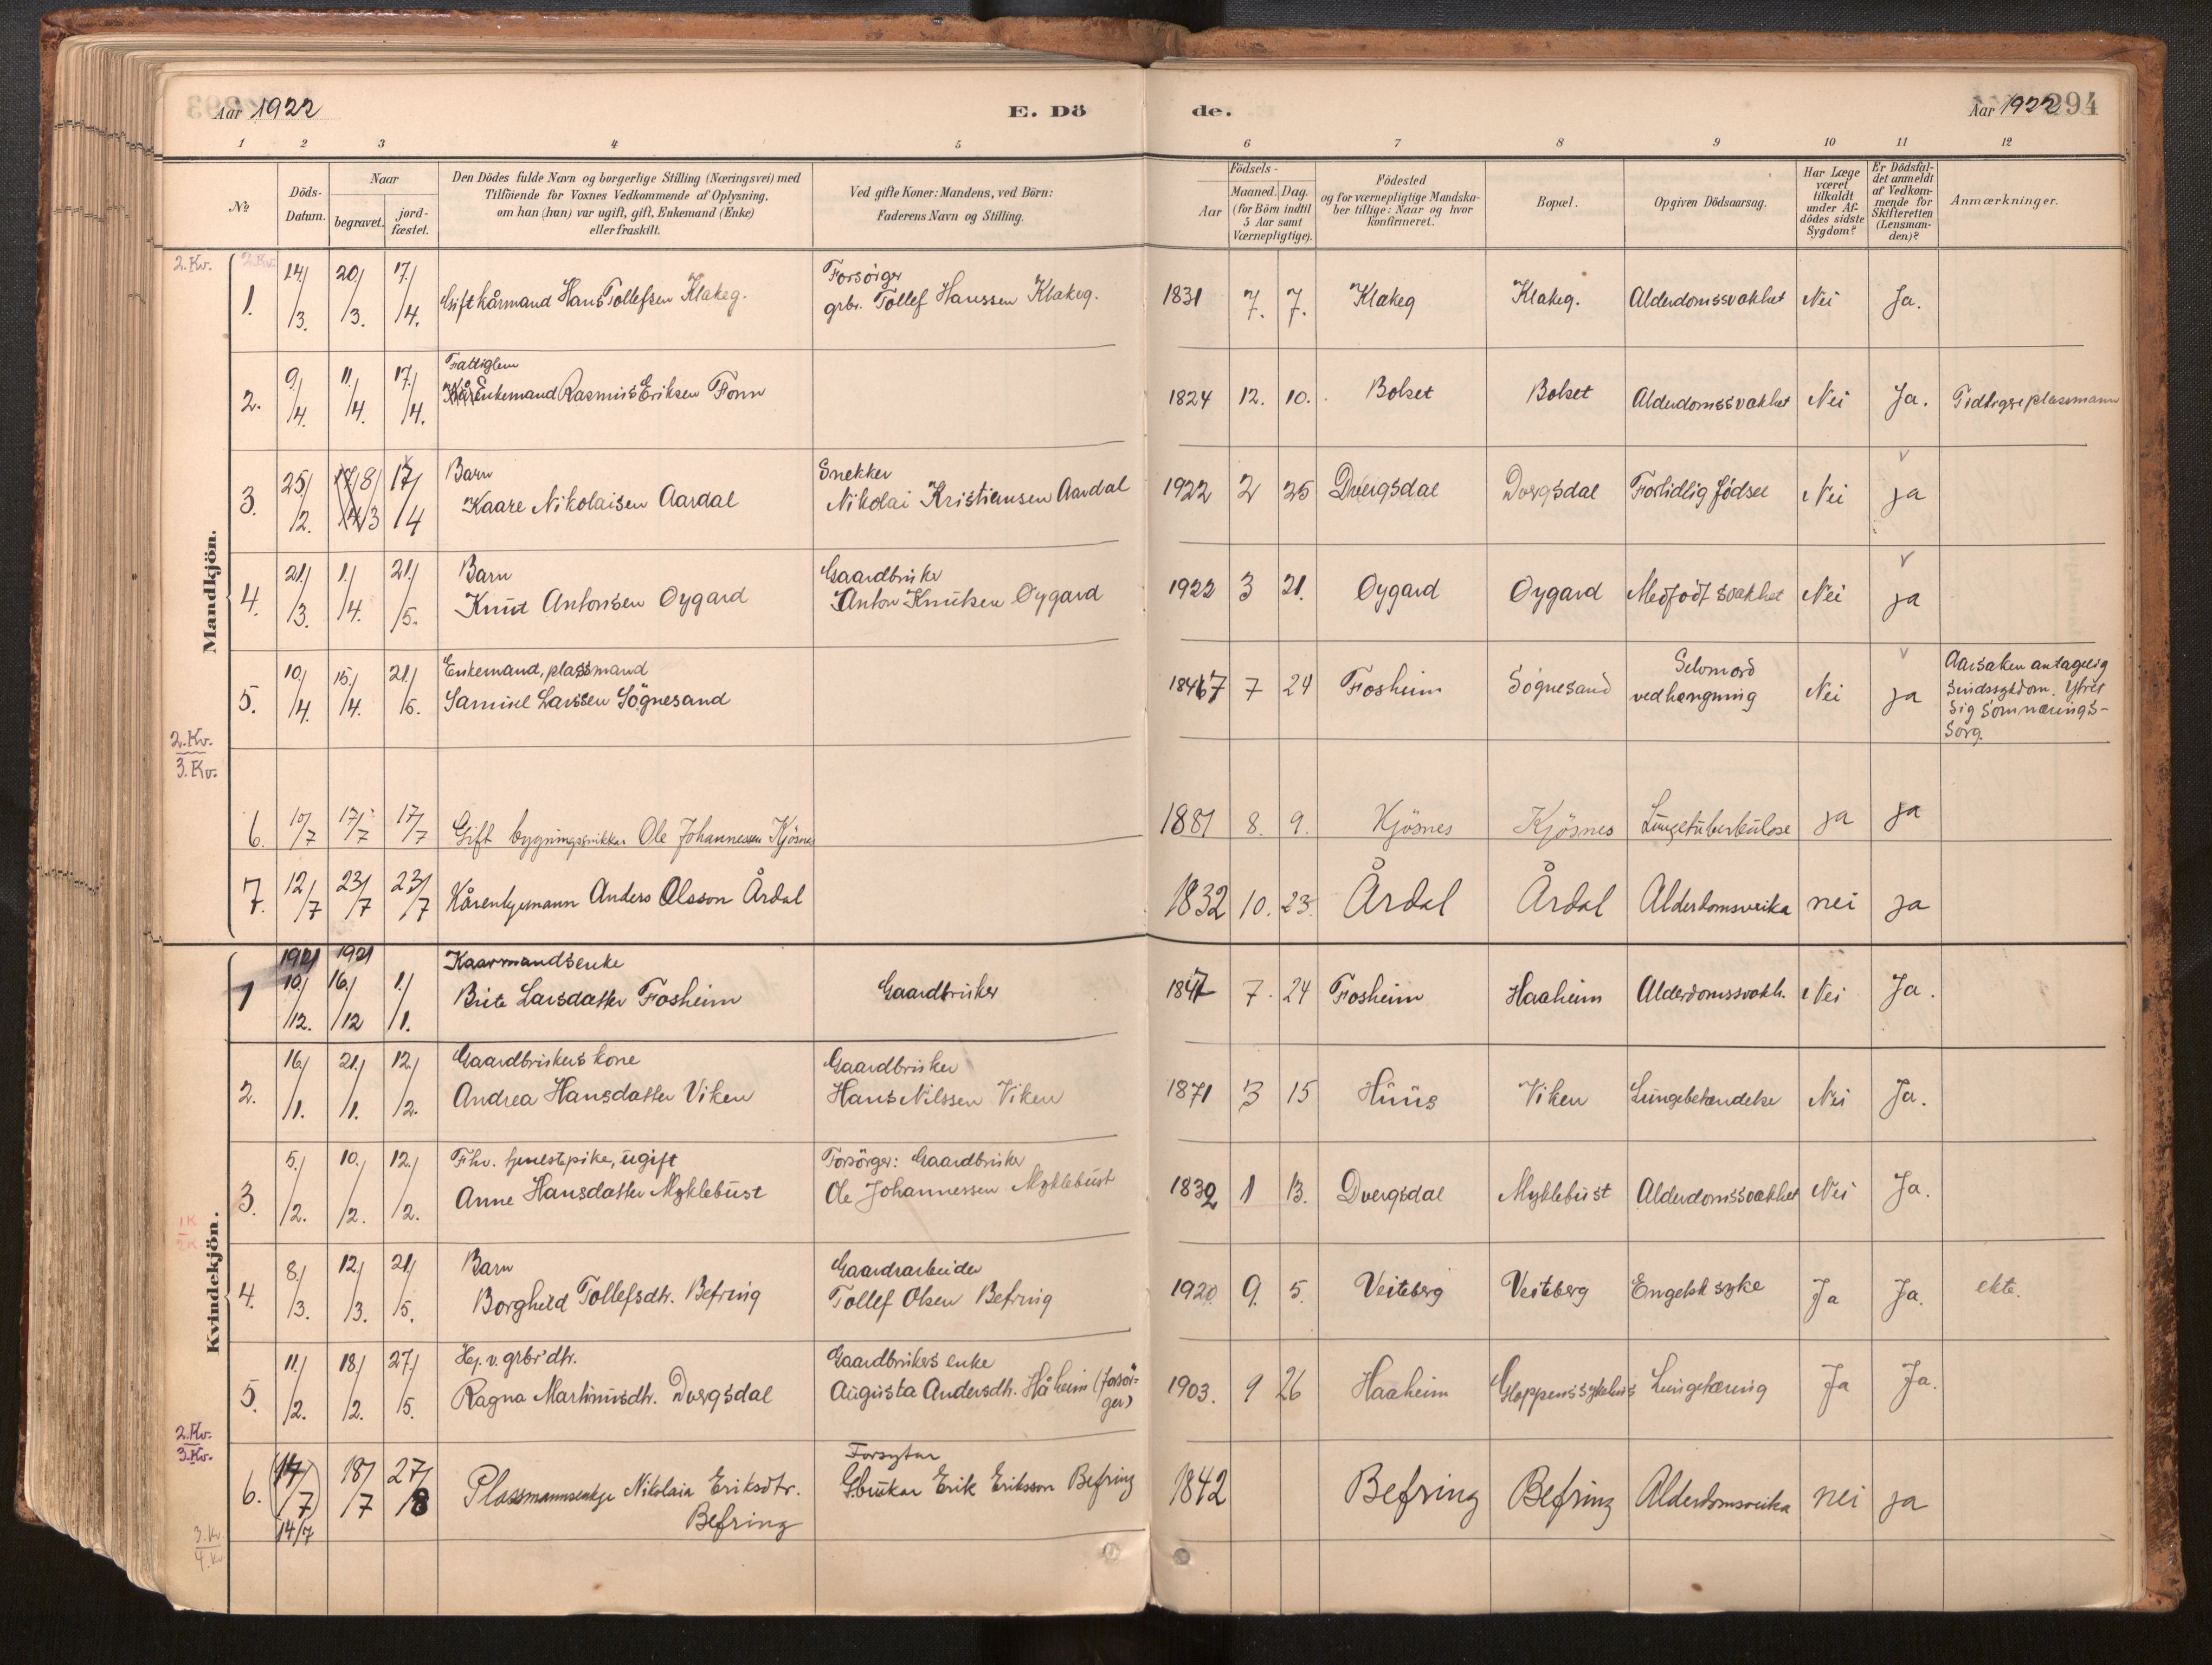 Aar 1922
E. Dö
de.
Aar 1922
294
1 2 3 4 5 6 7 8 9 10 11 12
№
Döds-Datum.
Naar
begravet.
jord-fæstet.
Den Dödes fulde Navn og borgerlige Stilling (Næringsvei) med
Tilföiende for Voxnes Vedkommende af Oplysning,
om han (hun) var ugift, gift, Enkemand (Enke)
eller fraskilt.
Ved gifte Koner: Mandens, ved Börn:
Faderens Navn og Stilling.
Födsels-
Aar
Maaned. Dag.
(for Börn indtil
5 Aar samt
Værnepligtige).
Födested
og for værnepligtige Mandska-
ber tillige: Naar og hvor
konfirmeret.
Bopæl.
Opgiven Dödsaarsag.
Har Læge
været
tilkaldt
under Af-
dödes sidste
Sygdom?
Er Dödsfal-
det anmeldt
af Vedkom-
mende for
Skifteretten
(Lensman-
den)?
Anmærkninger.
Mandkjön.
2. Kv.
1. 14/3. 20/3. 17/4. Gift kårmand Hans Tollefsen Klakeg.
Forsörger
grbr. Tollef Hanssen Klakeg.
1831 7. 7. Klakeg Klakeg. Alderdomssvakhet Nei Ja.
2. 9/4. 11/4. 17/4.
Fattiglem
Enkemand Rasmus Eriksen Fonn
1824 12. 10. Bolset Bolset Alderdomssvakhet Nei Ja. Tidligere plassmann
3. 25/2. 8/3 17/4
Barn
Kaare Nikolaisen Aardal
Snekker
Nikolai Kristiansen Aardal
1922 2 25 Dvergsdal Dvergsdal Fortidlig födsel Nei ja
4. 21/3. 1/4. 21/5.
Barn
Knut Antonsen Oygard
Gaardbruker
Anton Knutsen Oygard
1922 3 21. Oygard Oygard Medfödt svakhet Nei ja
5. 10/4. 15/4. 21/5.
Enkemand, plassmand
Samuel Larssen Sögnesand
1847 7 24 Fosheim Sögnesand
Selvmord
ved hengning
Nei ja
Aarsaken antagelig
Sindssykdom. Ytret
sig som nærings-
sorg.
2. Kv.
3. Kv.
6. 10/7 17/7 17/7 Gift bygningssnikkar Ole Johannessen Kjösnes
1881 8. 9. Kjösnes Kjösnes Lungetuberkulose ja ja
7. 12/7 23/7 23/7 Kårenkjemann Anders Olsson Årdal
1832 10. 23. Årdal Årdal Alderdomsveika nei ja
Kvindekjön.
1921 1921
1 10/12. 16/12 1/1.
Kaarmandsenke
Brite Larsdatter Fosheim
Gaardbruker
1847 7. 24 Fosheim Haaheim Alderdomssvakh. Nei Ja.
2. 16/1. 21/1. 12/2.
Gaardbrukers kone
Andrea Hansdatter Viken
Gaardbruker
Hans Nilssen Viken
1871 3 15 Huus Viken Lungebetændelse Nei Ja.
3. 5/2. 10/2. 12/2.
Fhv. tjenestpike, ugift
Anne Hansdatter Myklebust
Forsörger: Gaardbruker
Ole Johannessen Myklebust
1832 1 13. Dvergsdal Myklebust Alderdomssvakhet Nei Ja.
1K
2K
4. 8/3. 12/3. 21/5.
Barn
Borghild Tollefsdtr. Befring
Gaardsarbeider
Tollef Olsen Befring
1920 9. 5. Veiteberg Veiteberg Engelsk syke Ja Ja. ekte.
5. 11/2. 18/2. 27/5.
Hj. v. grbr' dtr.
Ragna Martinusdtr. Dvergsdal
Gaardbrukers enke
Augusta Andersdtr. Håheim (forsör-
ger)
1903. 9 26 Haaheim Gloppens sykehus Lungetæring Ja Ja.
2. Kv.
3. Kv.
6. (14/7) 18/7 27/8
14/7
Plassmannsenkje Nikolaia Eriksdtr.
Befring
Forsytar
Gbrukar Erik Eriksson Befring
1842 Befring Befring Alderdomsveika nei ja
3. Kv.
4. Kv.